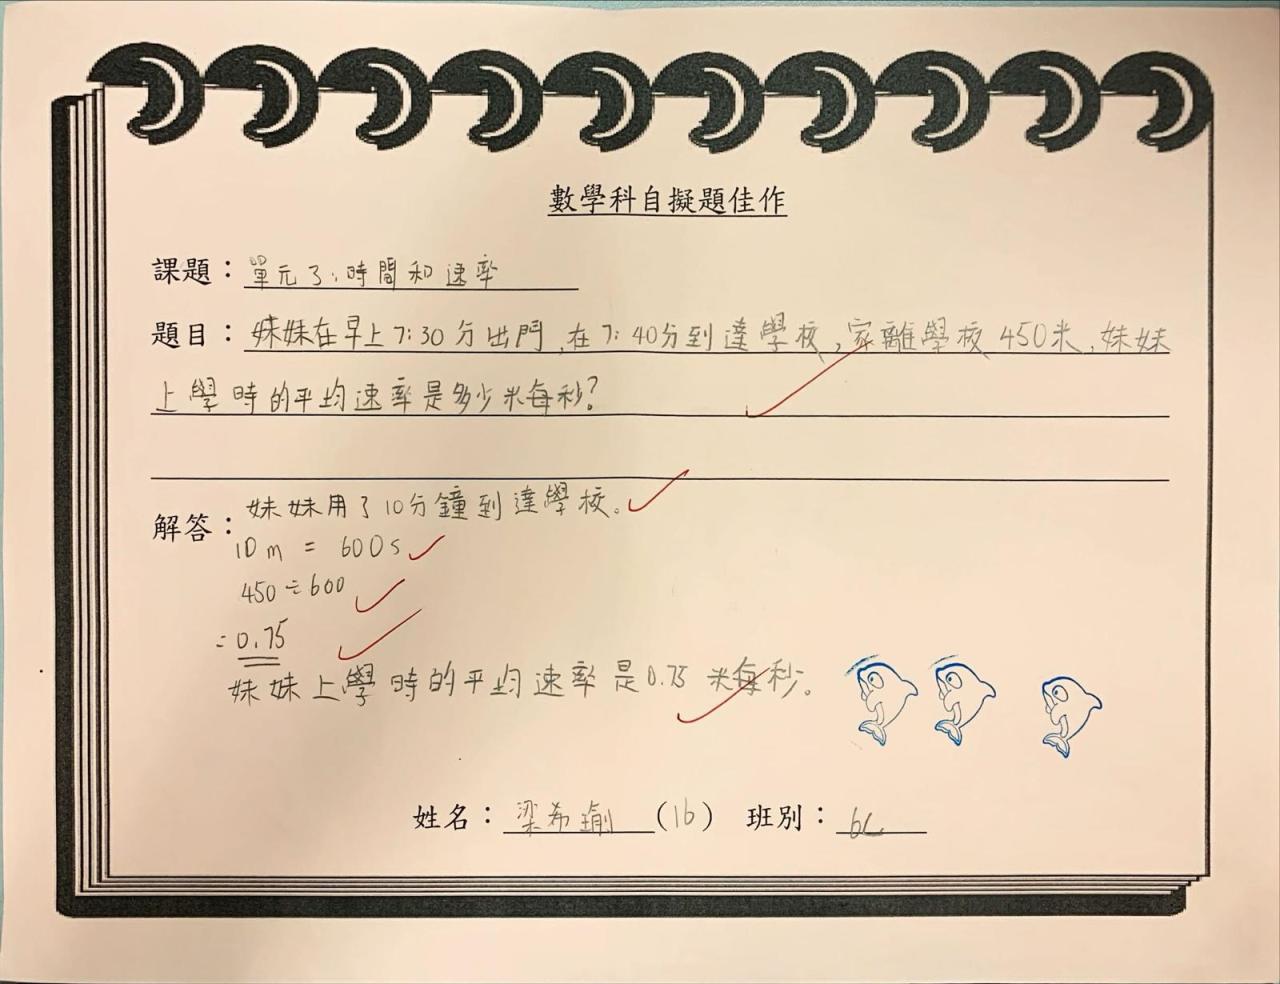 數學科自擬題佳作
課題：單元3：時間和速率
題目：妹妹在早上7:30分出門,在7:40分到達學校,家離學校450米,妹妹
上學時的平均速率是多少米每秒?
解答：妹妹用了10分鐘到達學校。
10m = 600s
450÷600
=0.75
妹妹上學時的平均速率是0.75米每秒。
姓名：梁希瑜 (16) 班別：6C